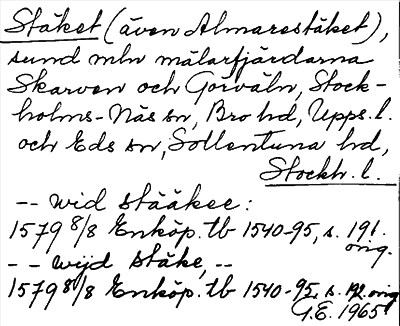 Stäket (även Almarestäket),
sund mln mälarfjärdarna
Skarven och Görväln, Stock-
holms-Näs sn, Bro hd, Upps. l.
och Eds sn, Sollentuna hd,
Stockh. l.
-- wid stääkee:
1579 8/8 Enköp. tb 1540-95, s. 191.
orig.
-- wijd stäke, --
1579 8/8 Enköp. tb 1540-95, s. 192 orig
G.E. 1965